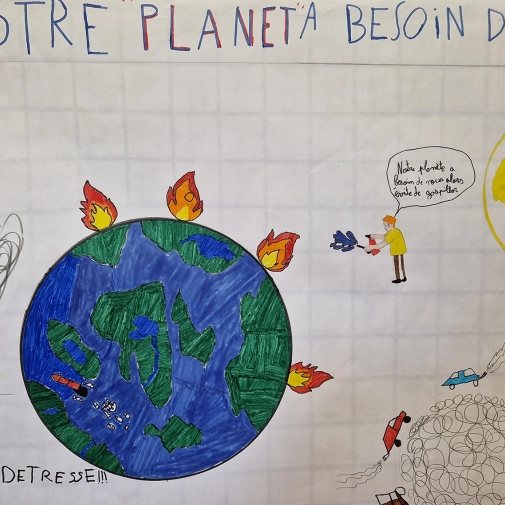 OTRE "PLANET" A BESOIN D
Notre planète a
besoin de nous alors
évite de gaspiller
DETRESSE!!!